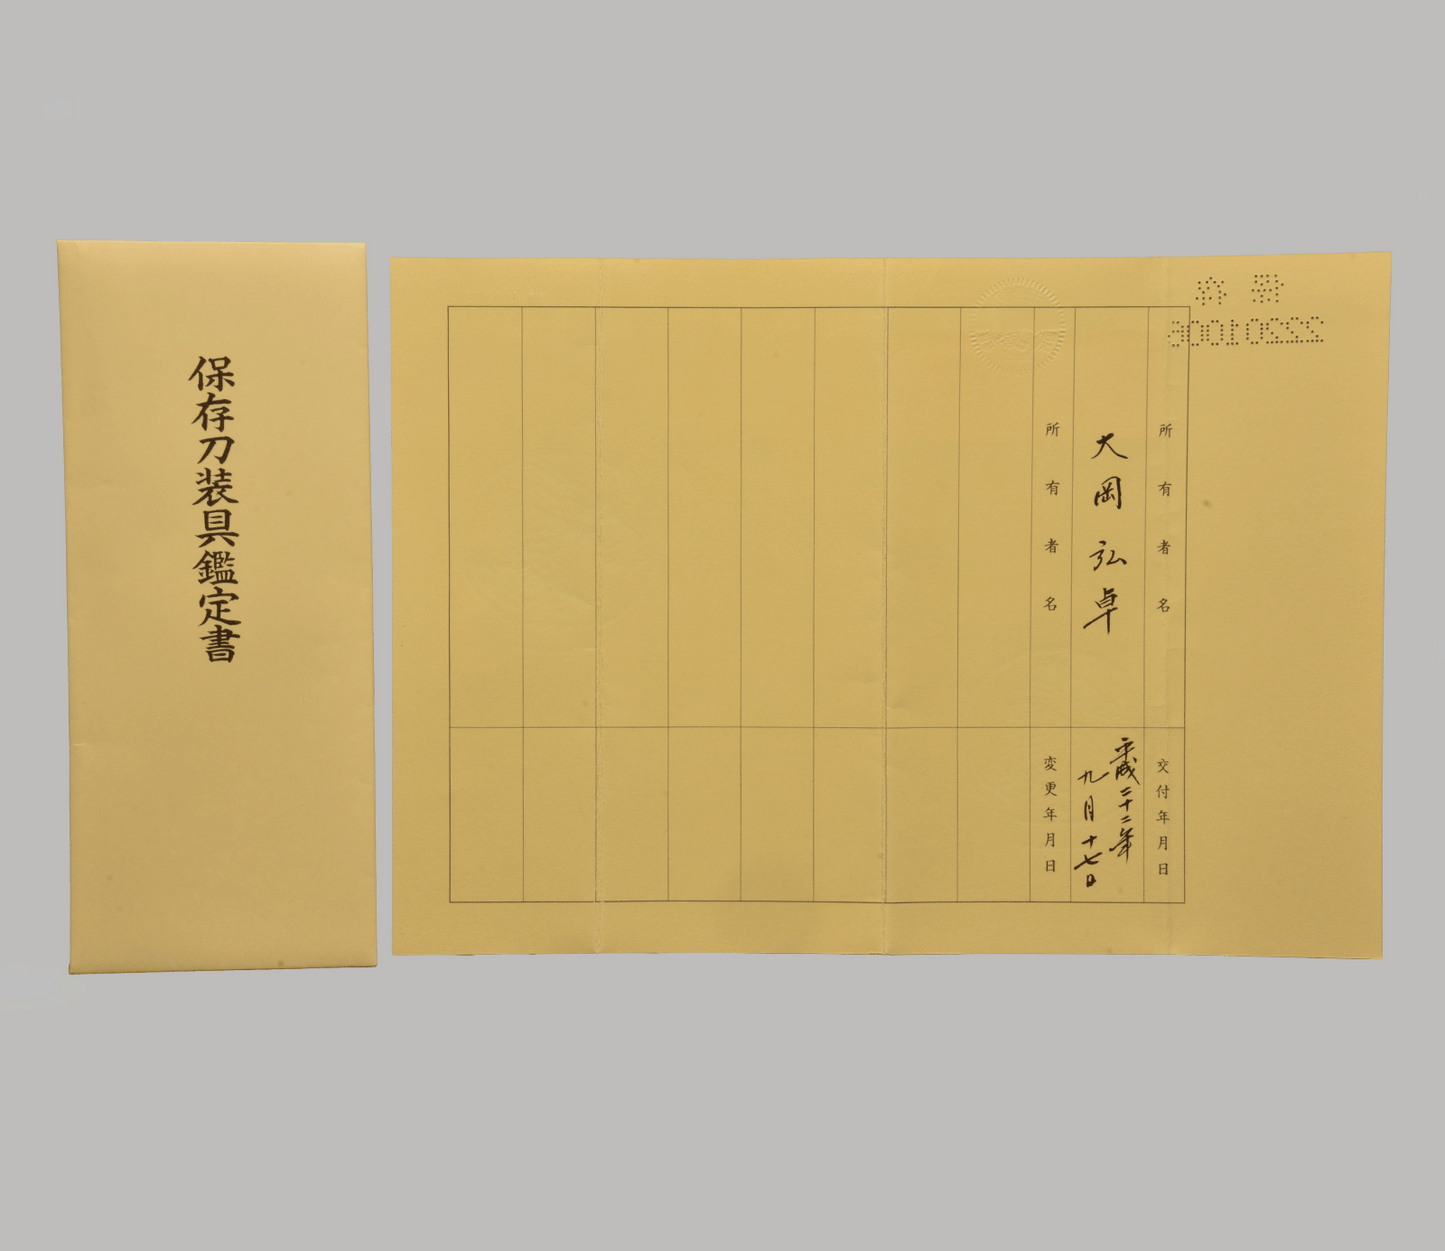 保存刀装具鑑定書
所有者名
交付年月日
大岡弘卓
平成二十二年
九月十七日
所有者名
変更年月日